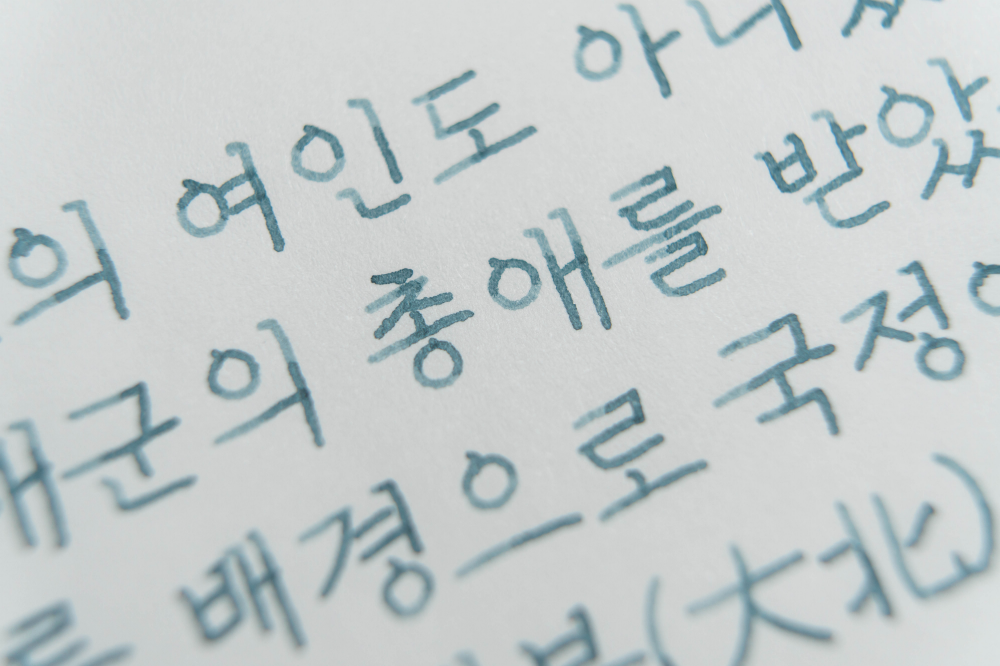 의 여인도 아니
군의 총애를 받았
를 배경으로 국정
(大北)